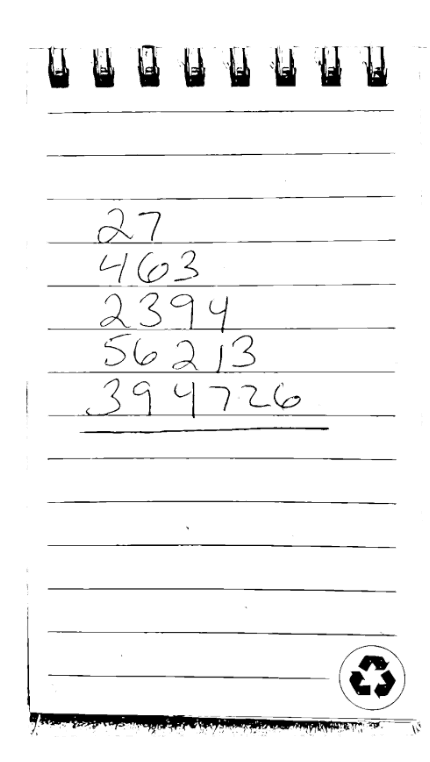 27
463
2394
56213
394726